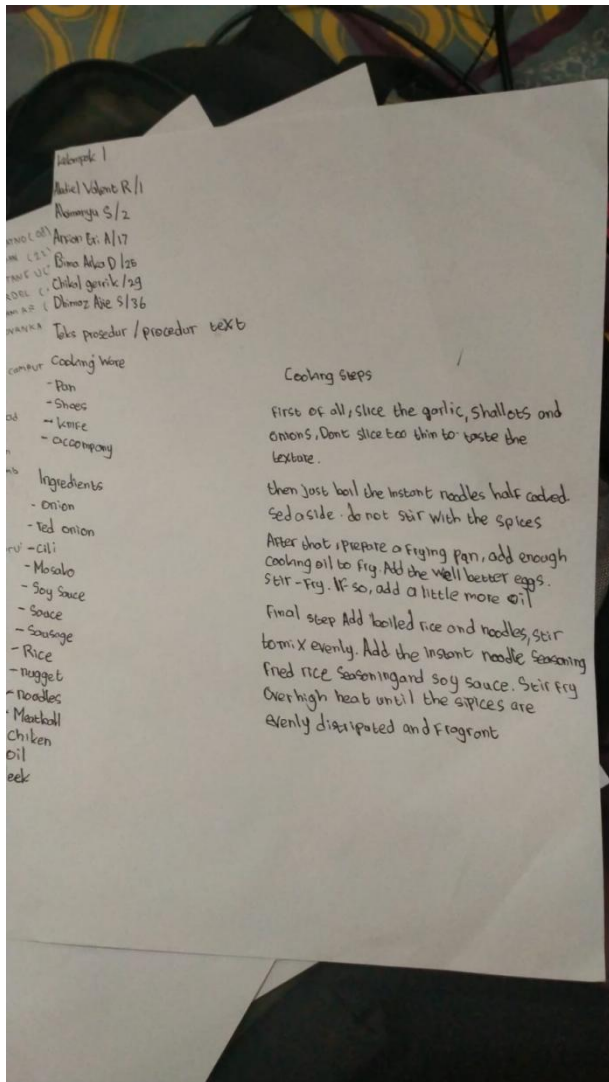 Kelompok 1
Valent R/1
Abimanyu S/2
A/17
Bima Arka D/26
Chikal gerrik/29
Dhimaz Ajie S/36
Teks prosedur / procedur text
Cooking Ware
- Pan
- Shoes
- knife
- accompany
Ingredients
- Onion
- red onion
- cili
- Masako
- Soy Sauce
- Sauce
- Sausage
- Rice
- nugget
- noodles
- Meatball
Chiken
oil
eek
Cooking steps
First of all, slice the garlic, Shallots and
onions, Dont slice too thin to taste the
texture.
then just boil the instant noodles half cooked
Sedaside. do not stir with the spices
After that, prepare a frying pan, add enough
cooking oil to fry. Add the well better eggs.
Stir-Fry. If so, add a little more oil
Final step Add boiled rice and noodles, stir
to mix evenly. Add the instant noodle Seasoning
fried rice Seasoning and soy sauce. Stir fry
Over high heat until the sipices are
evenly distripated and Fragrant